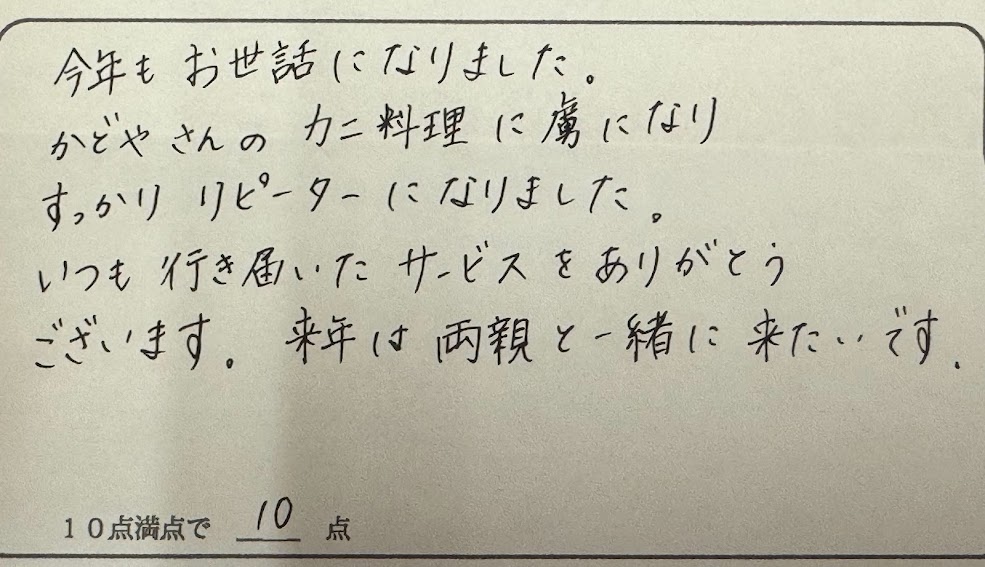 今年も お世話になりました。
かどやさんの カニ料理に虜になり
すっかり リピーターになりました。
いつも 行き届いた サービスを ありがとう
ございます。 来年は 両親と一緒に 来たいです.
10点満点で 10 点